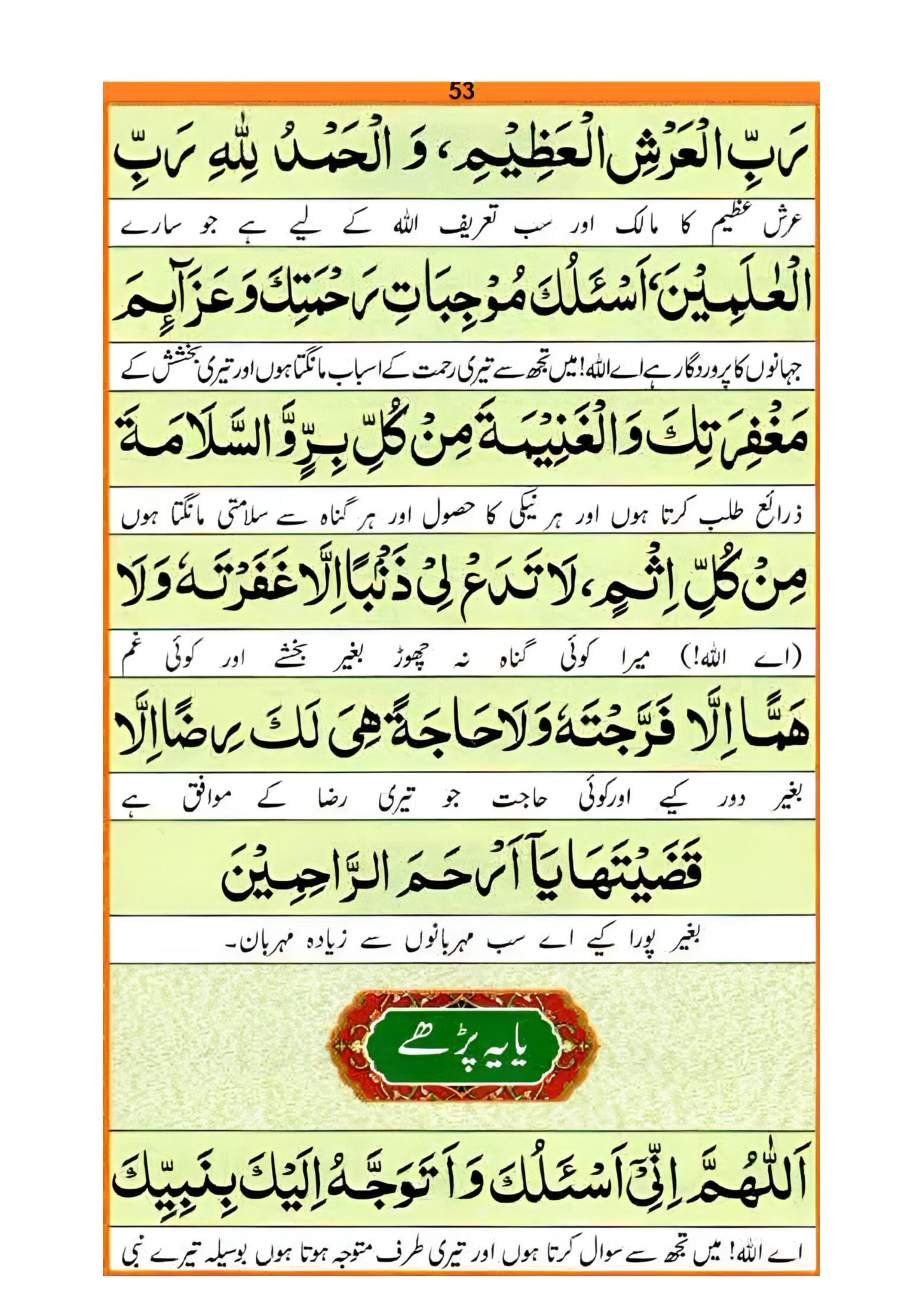 53
رَبِّ الْعَرْشِ الْعَظِيْمِ، وَ الْحَمْدُ لِلّٰهِ رَبِّ
عرش عظیم کا مالک اور سب تعریف اللہ کے لیے ہے جو سارے
الْعٰلَمِيْنَ، اَسْئَلُكَ مُوْجِبَاتِ رَحْمَتِكَ وَعَزَآئِمَ
جہانوں کا پروردگار ہے اے اللہ! میں تجھ سے تیری رحمت کے اسباب مانگتا ہوں اور تیری بخشش کے
مَغْفِرَتِكَ وَالْغَنِيْمَةَ مِنْ كُلِّ بِرٍّ وَّالسَّلَامَةَ
ذرائع طلب کرتا ہوں اور ہر نیکی کا حصول اور ہر گناہ سے سلامتی مانگتا ہوں
مِنْ كُلِّ اِثْمٍ، لَا تَدَعْ لِیْ ذَنْۢبًا اِلَّا غَفَرْتَهٗ وَلَا
(اے اللہ!) میرا کوئی گناہ نہ چھوڑ بغیر بخشے اور کوئی غم
هَمًّا اِلَّا فَرَّجْتَهٗ وَلَا حَاجَةً هِیَ لَكَ رِضًا اِلَّا
بغیر دور کیے اورکوئی حاجت جو تیری رضا کے موافق ہے
قَضَيْتَهَا يَآ اَرْحَمَ الرَّاحِمِيْنَ
بغیر پورا کیے اے سب مہربانوں سے زیادہ مہربان۔
یا یہ پڑھے
اَللّٰهُمَّ اِنِّیْٓ اَسْئَلُكَ وَ اَتَوَجَّهُ اِلَيْكَ بِنَبِيِّكَ
اے اللہ! میں تجھ سے سوال کرتا ہوں اور تیری طرف متوجہ ہوتا ہوں بوسیلہ تیرے نبی